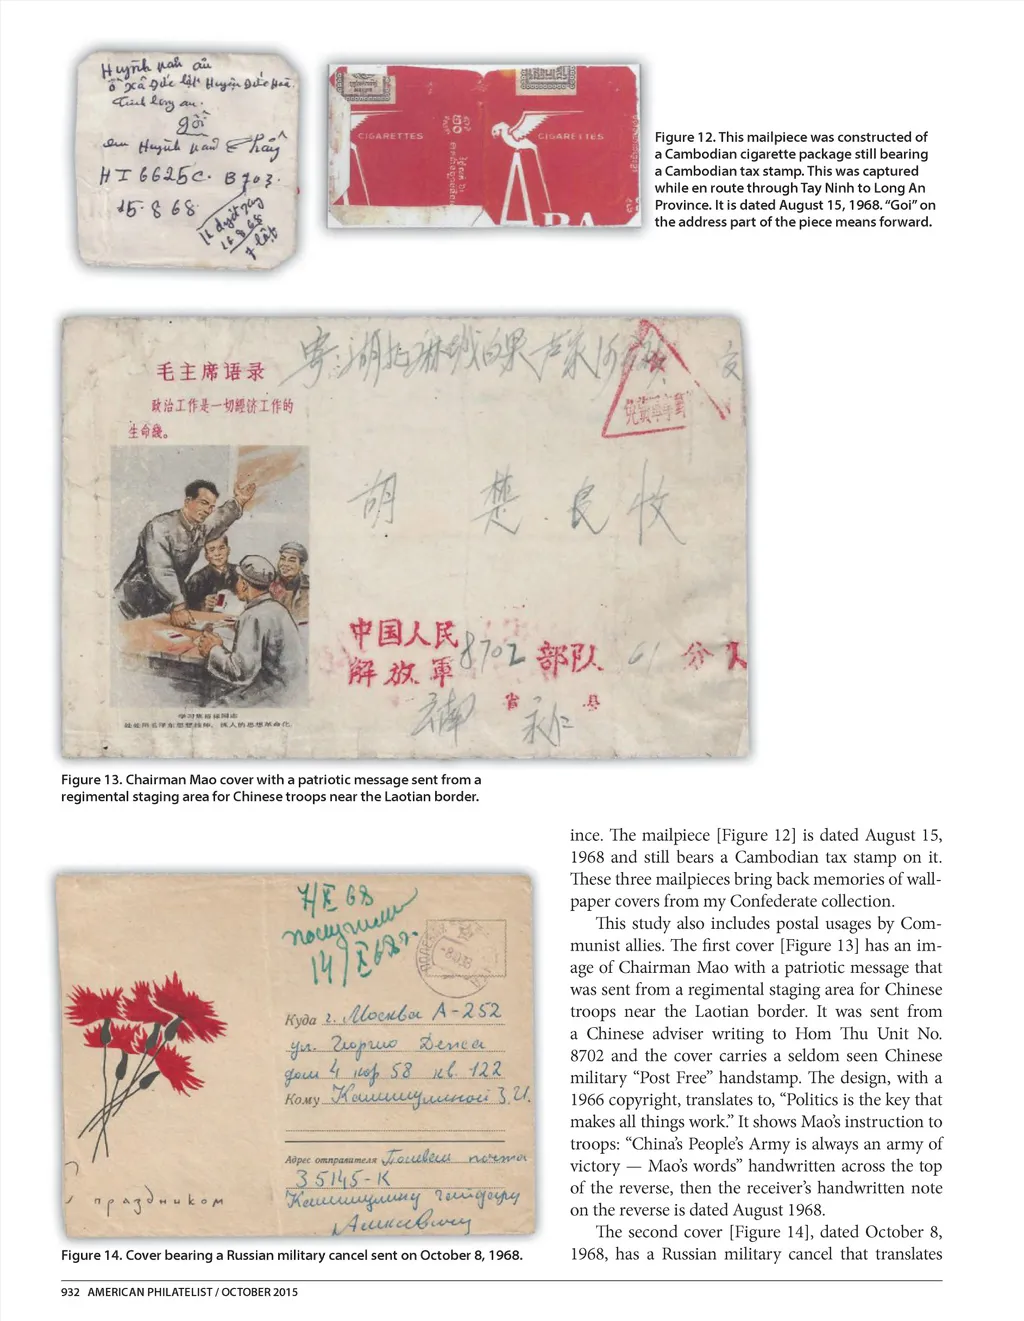 Huỳnh
ở xã Đức lập Huyện Đức Hoà
Tỉnh long an.
gởi
em Huỳnh
H I 6625C. B703.
15.8.68
CIGARETTES
CIGARETTES
BA
Figure 12. This mailpiece was constructed of
a Cambodian cigarette package still bearing
a Cambodian tax stamp. This was captured
while en route through Tay Ninh to Long An
Province. It is dated August 15, 1968. “Goi” on
the address part of the piece means forward.
毛主席语录
政治工作是一切經济工作的
生命綫。
胡 楚 良 收
中国人民
解放軍 8702 部队 61 分队
云南 省 永仁 县
学习焦裕禄同志
Figure 13. Chairman Mao cover with a patriotic message sent from a
regimental staging area for Chinese troops near the Laotian border.
ince. The mailpiece [Figure 12] is dated August 15,
1968 and still bears a Cambodian tax stamp on it.
These three mailpieces bring back memories of wall-
paper covers from my Confederate collection.
This study also includes postal usages by Com-
munist allies. The first cover [Figure 13] has an im-
age of Chairman Mao with a patriotic message that
was sent from a regimental staging area for Chinese
troops near the Laotian border. It was sent from
a Chinese adviser writing to Hom Thu Unit No.
8702 and the cover carries a seldom seen Chinese
military “Post Free” handstamp. The design, with a
1966 copyright, translates to, “Politics is the key that
makes all things work.” It shows Mao’s instruction to
troops: “China’s People’s Army is always an army of
victory — Mao’s words” handwritten across the top
of the reverse, then the receiver’s handwritten note
on the reverse is dated August 1968.
The second cover [Figure 14], dated October 8,
1968, has a Russian military cancel that translates
X 68
получили
14/X 68г.
Куда г. Москва А-252
ул. Георгио Дежа
дом 4 кор 58 кв. 122
Кому Камишулиной З.И.
Адрес отправителя Полевая почта
35145-К
с праздником
Figure 14. Cover bearing a Russian military cancel sent on October 8, 1968.
932 AMERICAN PHILATELIST / OCTOBER 2015